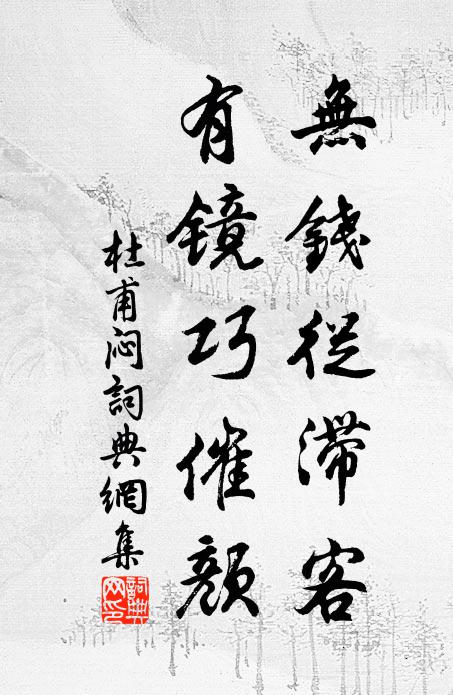 無錢從滯客
有鏡巧催顏
杜甫悶詞典網集
詞典